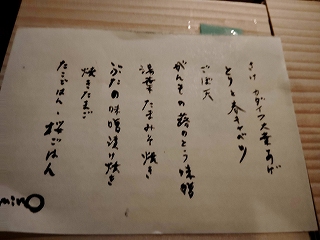 さけ カダイフ大葉あげ
とりと春キャベツ
ごぼ天
がんもの蕗のとう味噌
湯葉たまみそ焼き
ぶたの味噌漬け焼き
焼きたまご
たこごはん・桜ごはん
minO